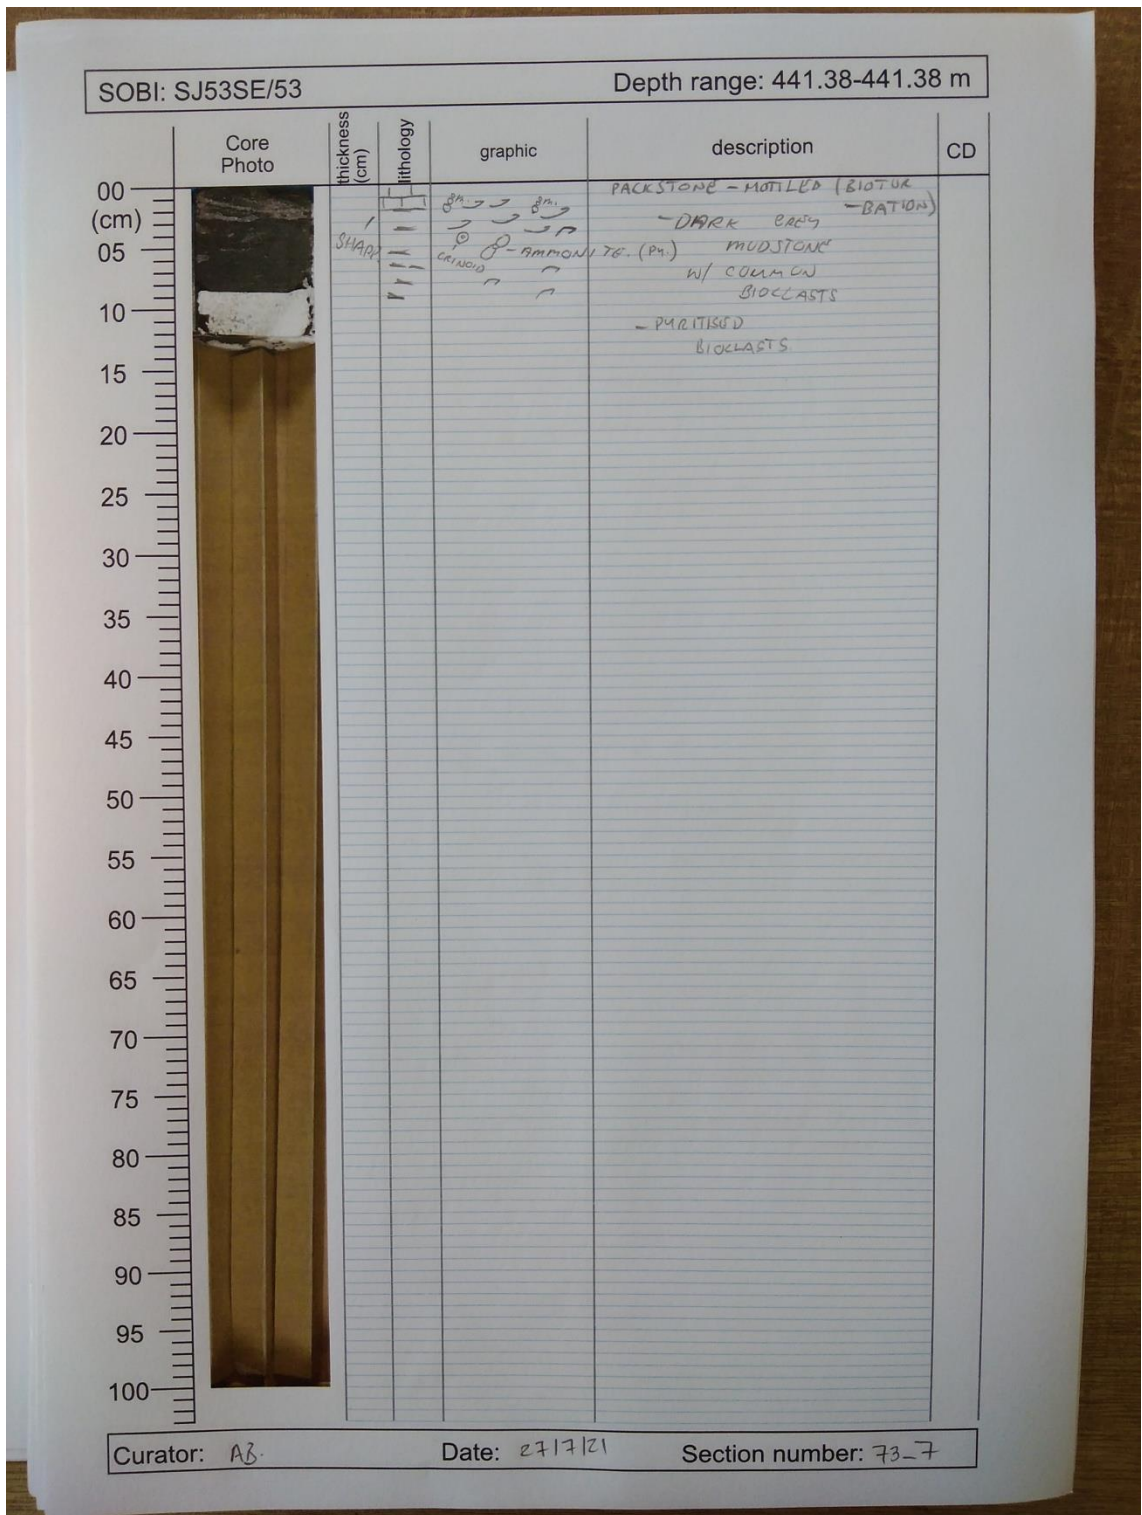 SOBI: SJ53SE/53 Depth range: 441.38-441.38 m
Core Photo thickness (cm) lithology graphic description CD
00
(cm)
05
10
15
20
25
30
35
40
45
50
55
60
65
70
75
80
85
90
95
100
SHARP
CRINOID
- AMMONITE. (Py.)
PACKSTONE - MOTTLED (BIOTUR
-BATION)
- DARK GREY
MUDSTONE
W/ COMMON
BIOCLASTS
- PYRITISED
BIOCLASTS
Curator: AB. Date: 27/7/21 Section number: 73_7